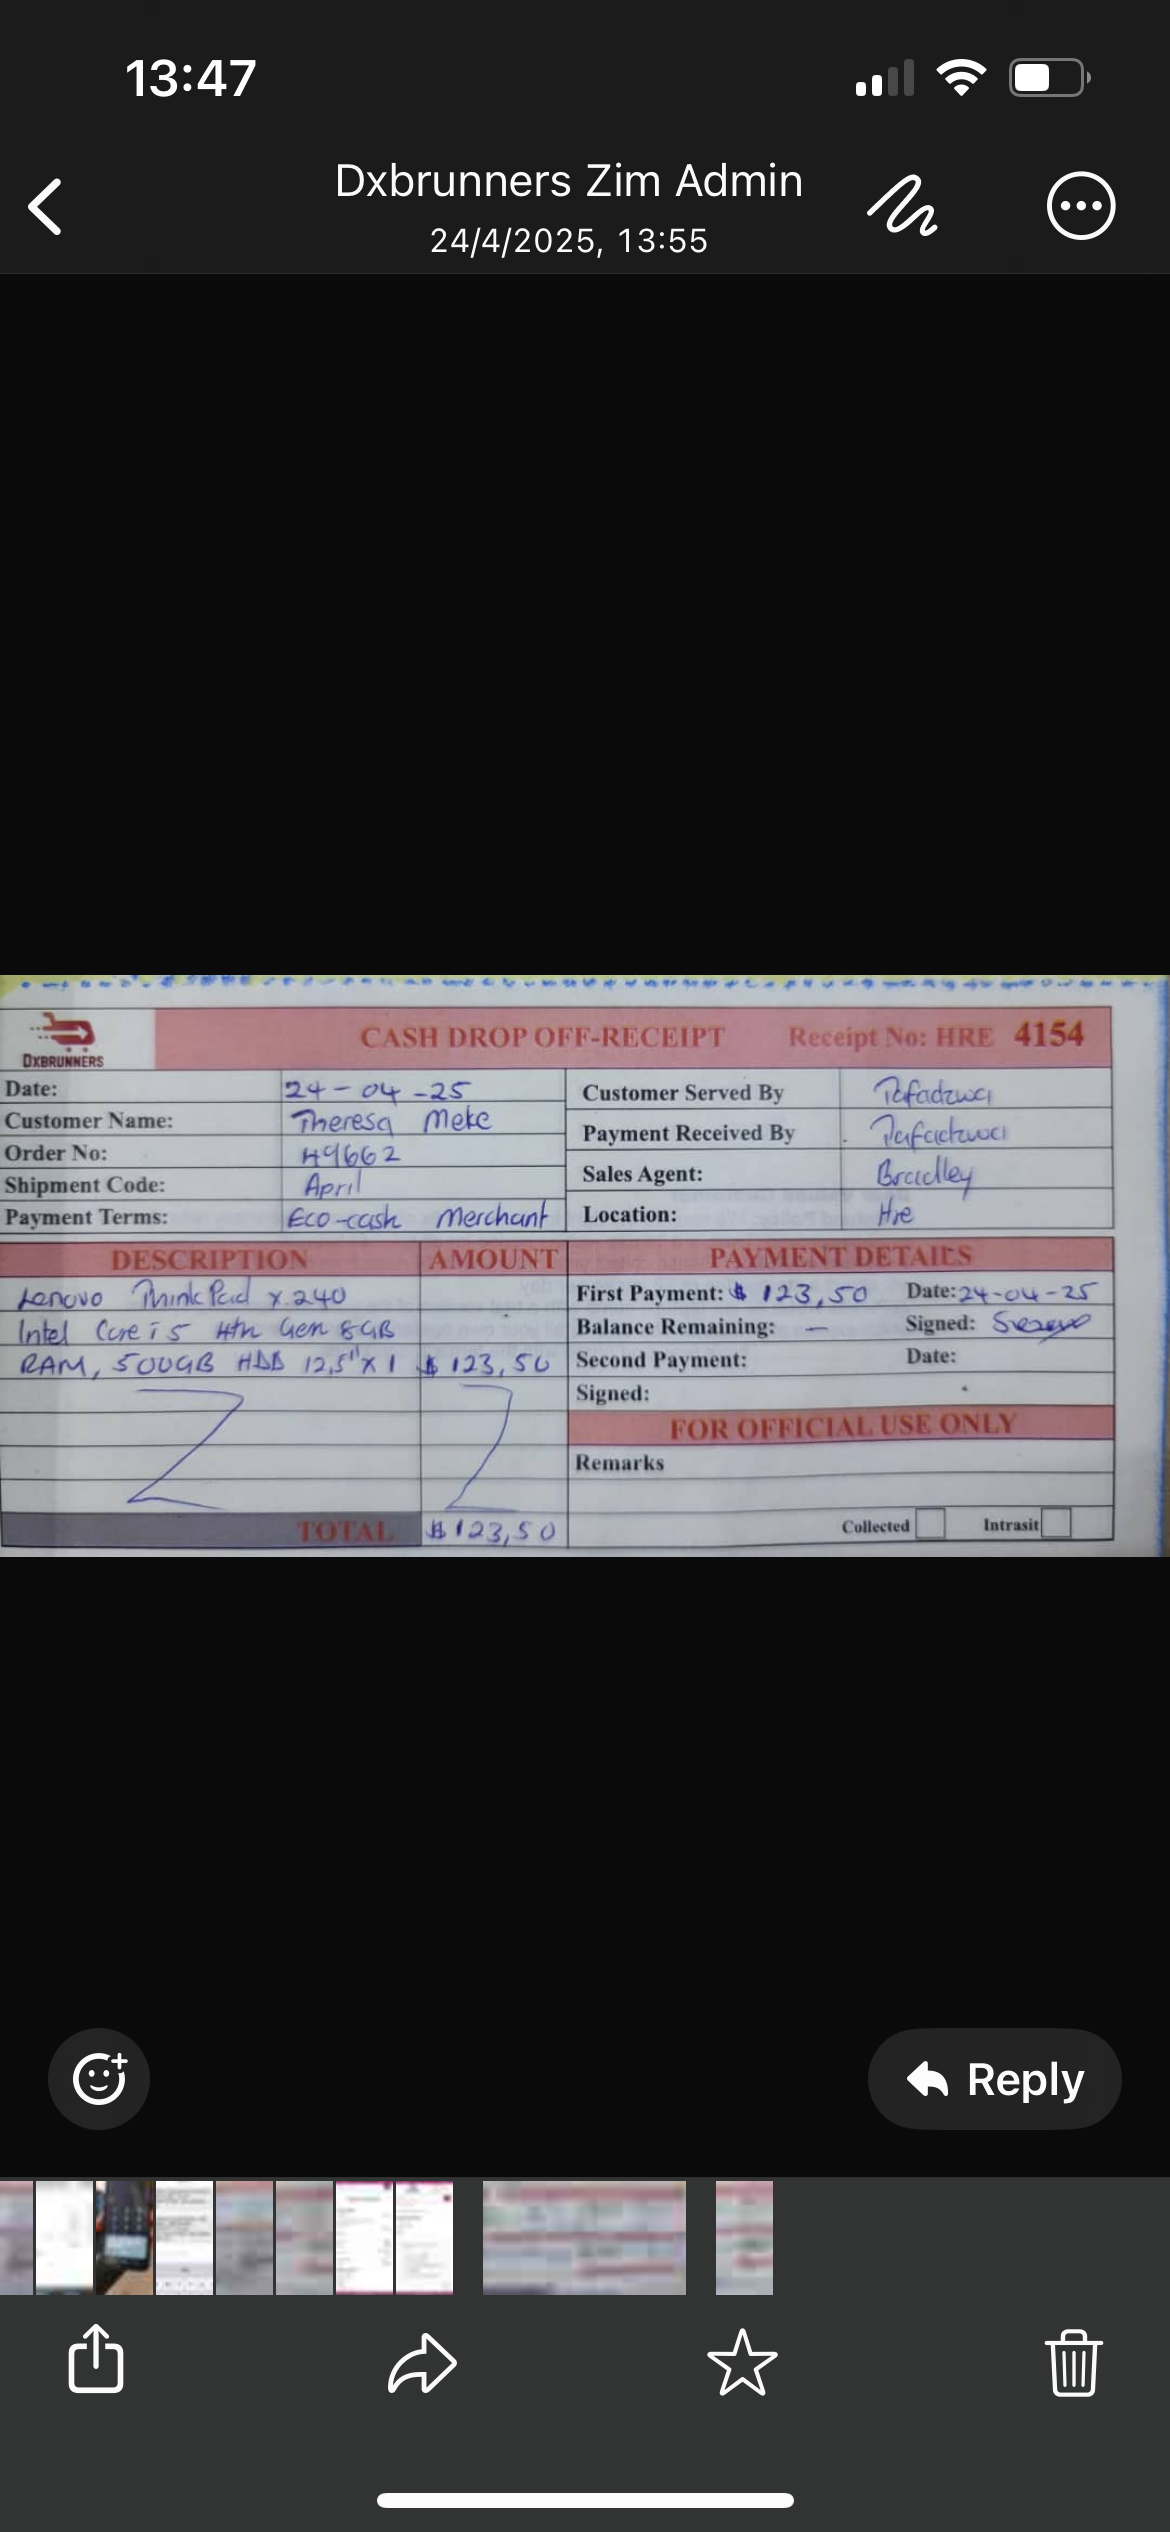 13:47
Dxbrunners Zim Admin
24/4/2025, 13:55
DXBRUNNERS
CASH DROP OFF-RECEIPT Receipt No: HRE 4154
Date: 24-04-25
Customer Name: Theresa Meke
Order No: 49662
Shipment Code: April
Payment Terms: Eco-cash Merchant
Customer Served By Tafadzwa
Payment Received By Tafadzwa
Sales Agent: Bradley
Location: Hre
DESCRIPTION AMOUNT
Lenovo ThinkPad x.240
Intel Core i5 4th Gen 8GB
RAM, 500GB HDD 12,5"x1 $123,50
TOTAL $123,50
PAYMENT DETAILS
First Payment: $123,50 Date: 24-04-25
Balance Remaining: — Signed:
Second Payment: Date:
Signed:
FOR OFFICIAL USE ONLY
Remarks
Collected Intrasit
Reply